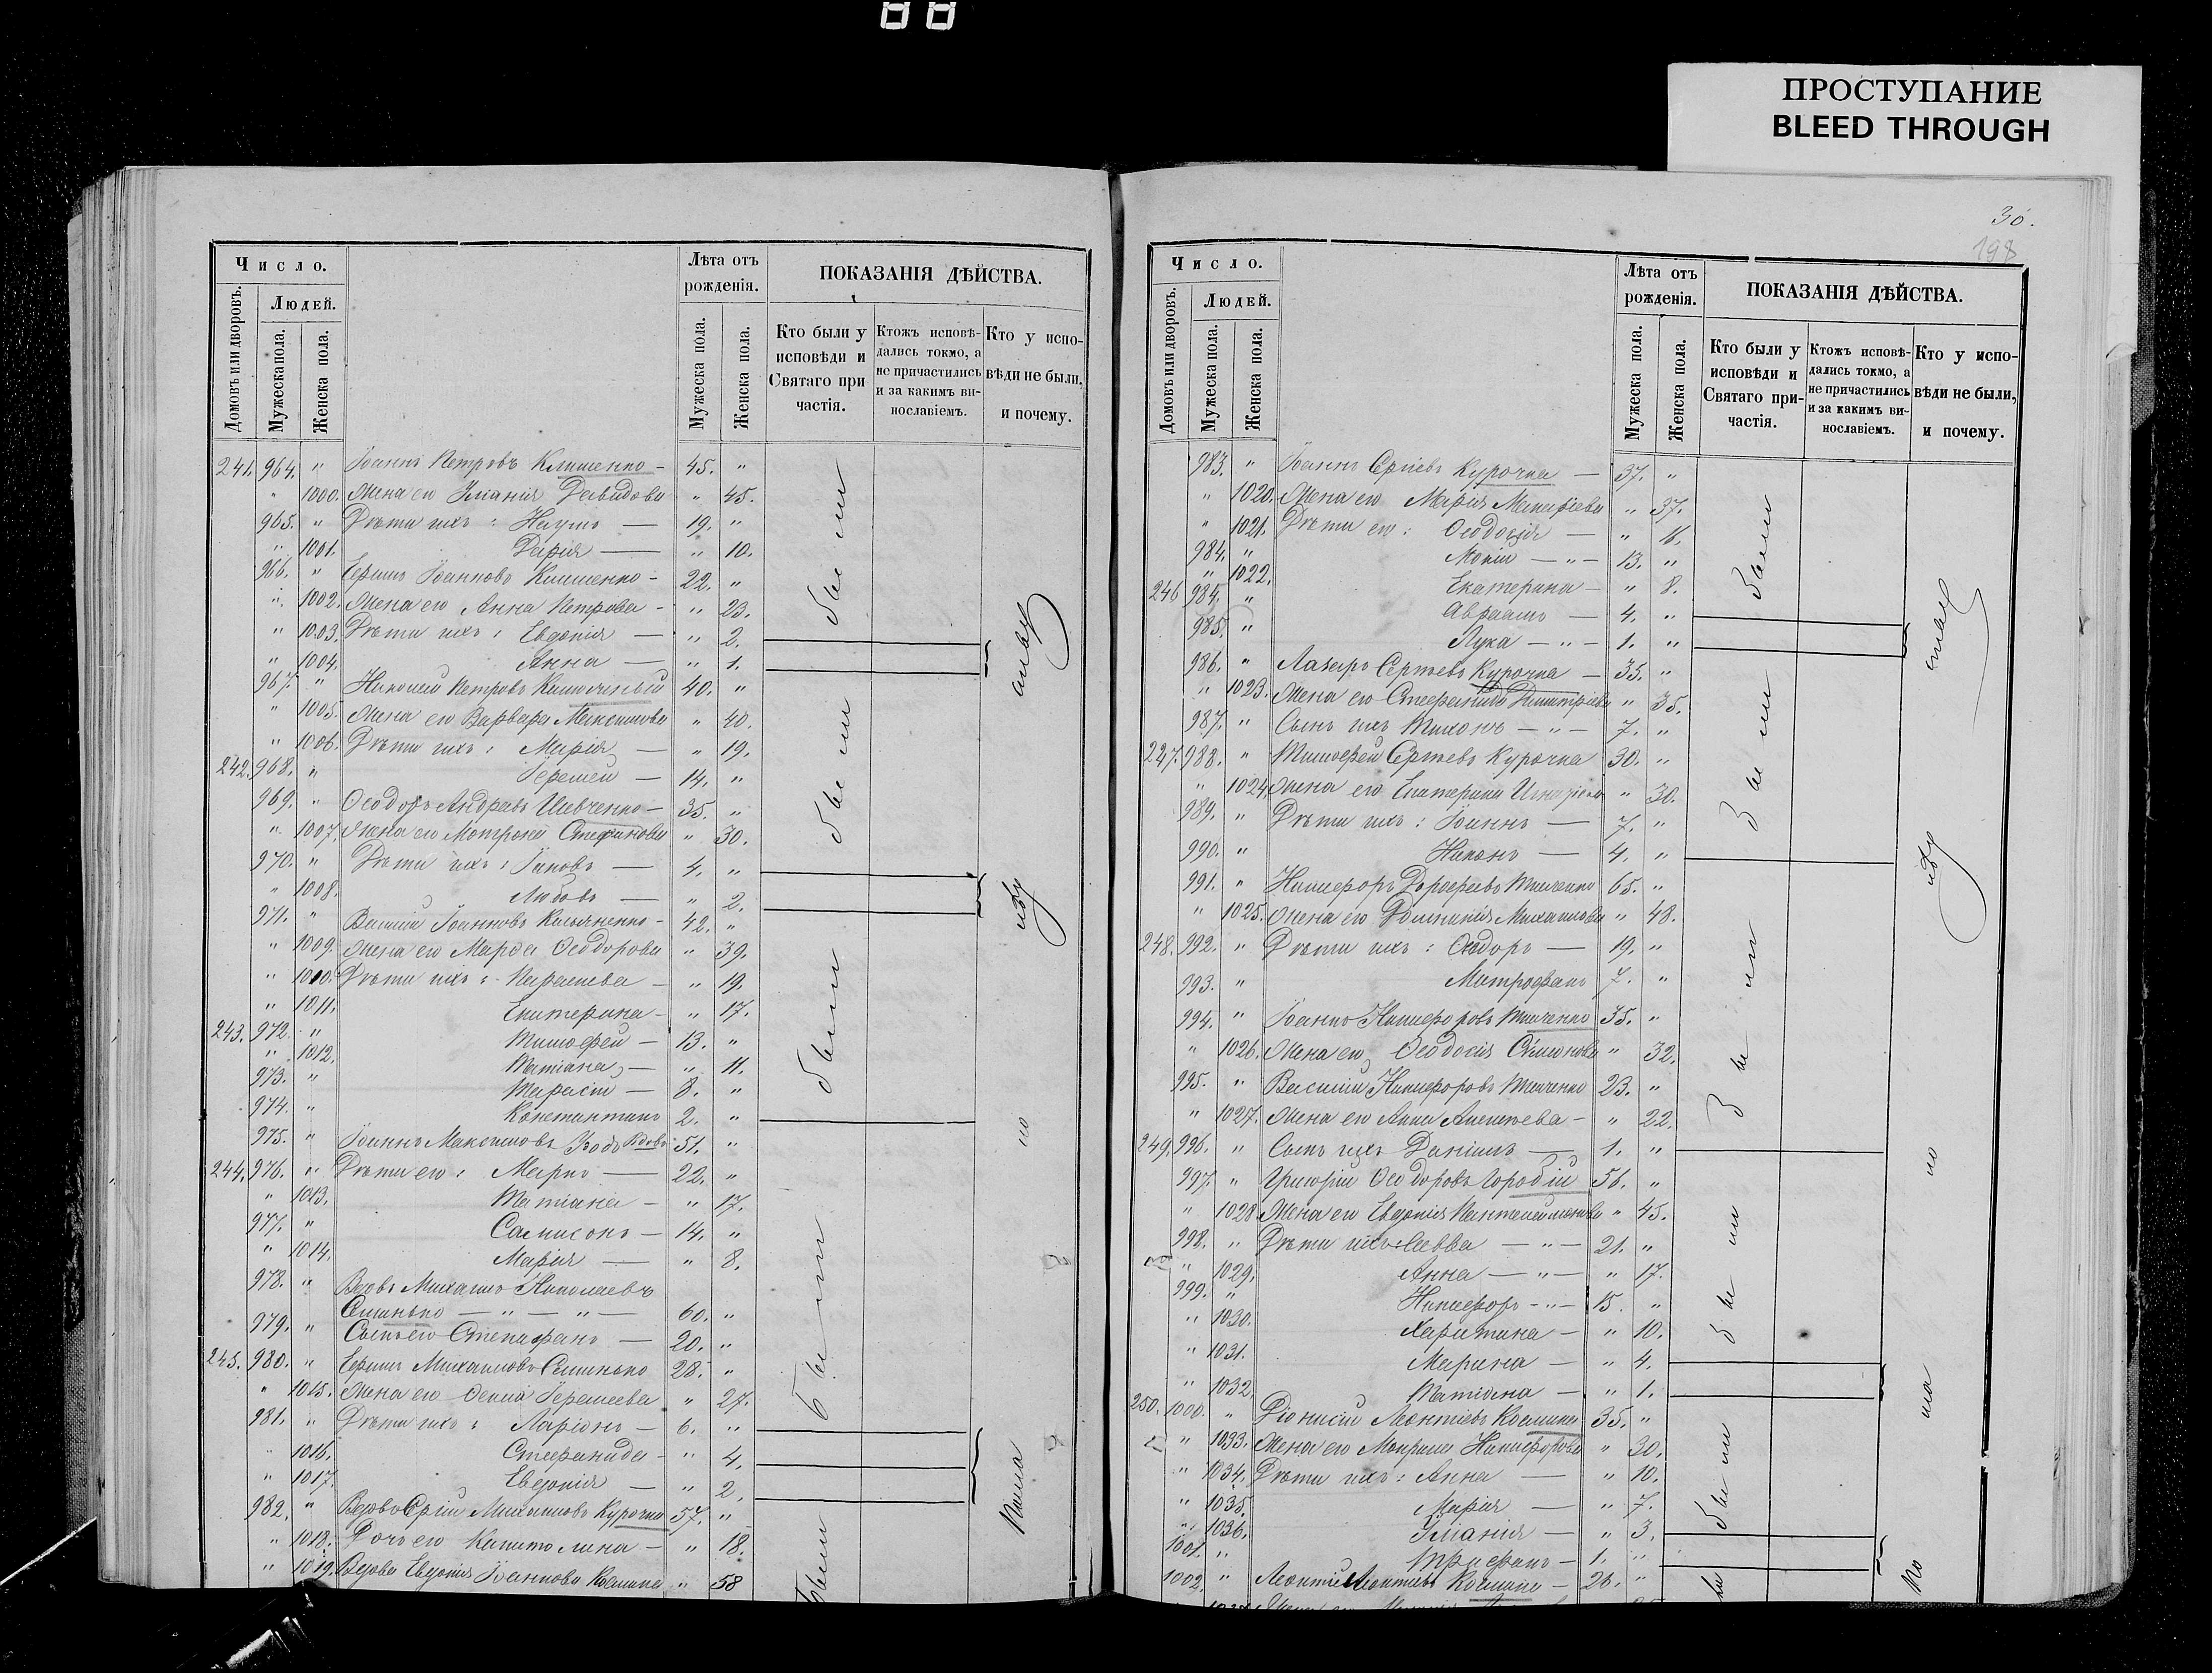 88
ПРОСТУПАНИЕ
BLEED THROUGH
Число.
Лѣта отъ рожденія.
ПОКАЗАНІЯ ДѢЙСТВА.
Домовъ или дворовъ.
Людей.
Мужеска пола.
Женска пола.
Мужеска пола.
Женска пола.
Кто были у исповѣди и Святаго при частія.
Ктожъ исповѣ- дались токмо, а не причастились и за какимъ ви- нославіемъ.
Кто у испо- вѣди не были, и почему.
241. 964. " Іоаннъ Петровъ Клименко - 45. "
" 1000. Жена его Уліанія Давидова " 45.
965. " Дѣти ихъ: Наумъ — 19. "
" 1001. Дарія — " 10.
966. " Ефимъ Іоанновъ Клименко - 22. "
" 1002. Жена его Анна Петрова - " 23.
" 1003. Дѣти ихъ: Евдокія — " 2.
" 1004. Анна — " 1.
967. " Николай Петровъ 40. "
" 1005. Жена его Варвара Максимова " 40.
" 1006. Дѣти ихъ: Марія — " 19.
242. 968. " Іеремей — 14. "
969. " Ѳеодоръ Андреевъ Шевченко - 35. "
" 1007. Жена его Матрона Стефанова " 30.
970. " Дѣти ихъ: Іаковъ — 4. "
" 1008. Любовь — " 2.
971. " Василій Іоанновъ Касьяненко - 42. "
" 1009. Жена его Марѳа Ѳеодорова " 39.
" 1010. Дѣти ихъ: Параскева — " 19.
" 1011. Екатерина - " 17.
243. 972. " Тимоѳей — 13. "
" 1012. Татіана — " 11.
973. " Тарасій — 8. "
974. " Константинъ 2. "
975. " Іоаннъ Максимовъ 51. "
244. 976. " Дѣти его: Марко — 22. "
" 1013. Татіана — " 17.
977. " Сампсонъ — 14. "
" 1014. Марія — " 8.
978. " Вдовъ Михаилъ Николаевъ
Симинько — " — " — 60. "
979. " Сынъ его Стефанъ — 20. "
245. 980. " Ефимъ Михаиловъ Симинько 28. "
" 1015. Жена его Ѳекла Іеремеева " 27.
981. " Дѣти ихъ: Ларіонъ — 6. "
" 1016. Стефанида - " 4.
" 1017. Евдокія — " 2.
982. " Вдовъ Сергій Михаиловъ Курочка 57. "
" 1018. Дочь его Капитолина — " 18.
" 1019. Вдова Евдокія Іоаннова " 58
были
были
были
были
были
по
мал
30.
198
Число.
Лѣта отъ рожденія.
ПОКАЗАНІЯ ДѢЙСТВА.
Домовъ или дворовъ.
Людей.
Мужеска пола.
Женска пола.
Мужеска пола.
Женска пола.
Кто были у исповѣди и Святаго при- частія.
Ктожъ исповѣ- дались токмо, а не причастились и за какимъ ви- нославіемъ.
Кто у испо- вѣди не были, и почему.
983. " Іоаннъ Сергіевъ Курочка — 37. "
" 1020. Жена его Марія " 37.
" 1021. Дѣти его: Ѳеодосія — " 16.
984. " Мокій — " — 13. "
" 1022. Екатерина — " 8.
246 984. " Авраамъ — 4. "
985. " Лука — " — 1. "
986. " Лазарь Сергіевъ Курочка — 35. "
" 1023. Жена его Стефанида Димитріева " 35.
987. " Сынъ ихъ Тихонъ — " — 7. "
247. 988. " Тимоѳей Сергіевъ Курочка 30. "
" 1024. Жена его Екатерина Игнатіева " 30.
989. " Дѣти ихъ: Іоаннъ — 7. "
990. " Никонъ — 4. "
991. " Никифоръ Дорофеевъ Ткаченко 65. "
" 1025. Жена его Домникія Михаилова " 48.
248. 992. " Дѣти ихъ: Ѳеодоръ — 19. "
993. " Митрофанъ 7. "
994. " Іоаннъ Никифоровъ Ткаченко 35. "
" 1026. Жена его Ѳеодосія Симонова " 32.
995. " Василій Никифоровъ Ткаченко 23. "
" 1027. Жена его Анна Алексѣева - " 22.
249. 996. " Сынъ ихъ Даніилъ — 1. "
997. " Григорій Ѳеодоровъ Горобій 56. "
" 1028. Жена его Евдокія Пантелеимонова " 45.
998. " Дѣти ихъ: Савва — " — 21. "
" 1029. Анна — " — " 17.
999. " Никифоръ - " — 15. "
" 1030. Харитина — " 10.
" 1031. Марина — " 4.
" 1032. Татіана — " 1.
250. 1000. " Діонисій Леонтіевъ 35. "
" 1033. Жена его Никифорова " 30.
" 1034. Дѣти ихъ: Анна — " 10.
" 1035. Марія — " 7.
" 1036. Уліанія — " 3.
1001. " Трифонъ — 1. "
1002. " Леонтій Леонтіевъ — 26. "
были
были
были
были
были
по